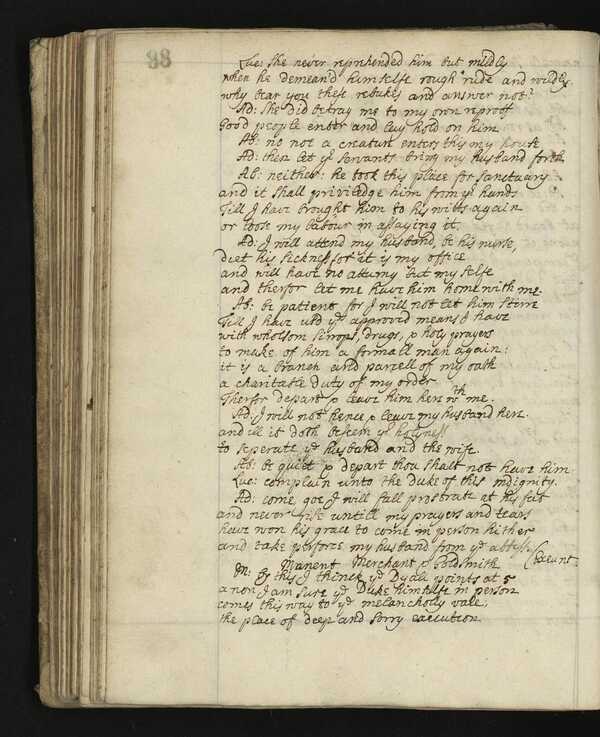 88
Luc: She never reprehended him but mildly
when he demean'd himselfe rough ride and wildly.
why bear you these rebukes and answer not?
Ad: She did betray me to my own reproof
Good people enter and lay hold on him
Ab: no not a creature enters this my house
Ad: then let yͤ servants bring my husband forth
Ab: neither: he took this place for sanctuary
and it shall priviledge him from yͬ hands
Till I have brought him to his witts again
or loose my labour in assaying it.
Ad: I will attend my husband, be his nurse,
diet his sicknesse for it is my office
and will have no atturny but my selfe
and therfor let me have him home with me.
Ab: be patient for I will not let him stirre
Till I have us'd yͤ approved means I have
with wholsom sirrops, drugs, & holy prayers
to make of him a formall man again:
it is a branch and parcell of my oath
a charitable duty of my order
Therfor depart & leave him here wᵗʰ me.
Ad: I will not hence & leave my husband here.
and ill it doth beseem yͬ holyness
to seperate yͤ husband and the wife.
Ab: be quiet & depart thou shalt not have him
Luc: complain unto the Duke of this indignity.
Ad: come goe I will fall prostrate at his feet
and never rise untill my prayers and tears
have won his grace to come in person hither
and take perforce my husband from yͤ abbysse
Manent Merchant & Goldsmith (Exeunt
M: By this I thinck yͤ Dyall points at 5
anon I am sure yͤ Duke himselfe in person
comes this way to yͤ melancholly vale,
the place of deep and sorry execution